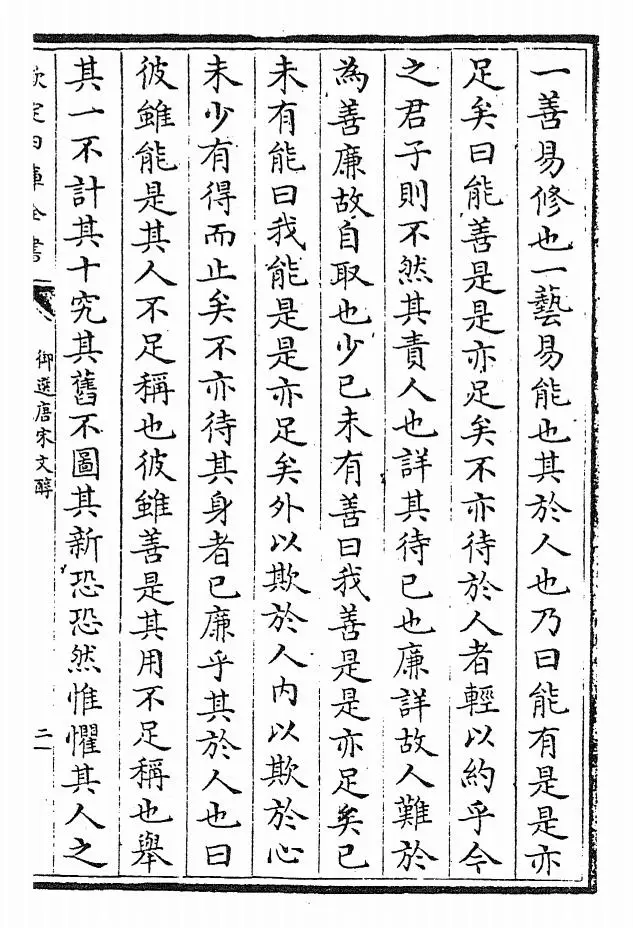 一善易修也一藝易能也其於人也乃曰能有是是亦
足矣曰能善是是亦足矣不亦待於人者輕以約乎今
之君子則不然其責人也詳其待已也廉詳故人難於
為善廉故自取也少已未有善曰我善是是亦足矣已
未有能曰我能是是亦足矣外以欺於人内以欺於心
未少有得而止矣不亦待其身者已廉乎其於人也曰
彼雖能是其人不足稱也彼雖善是其用不足稱也舉
其一不計其十究其舊不圖其新恐恐然惟懼其人之
欽定四庫全書
御選唐宋文醇
二